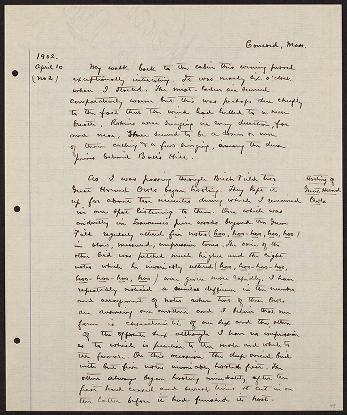 Concord, Mass.
1902.
April 10
(No 2)
My walk back to the cabin this evening proved
exceptionally interesting. It was nearly six o'clock
when I started. The most seemed
comparatively warm but this was perhaps due chiefly
to the fact that the wind had lulled to a mere
breath. Robins were singing in every direction, far
and near. There seemed to be a dozen or more
of them calling & a few singing, among the dense
pines behind Ball's Hill.
As I was passing through Birch Field two
Great Horned Owls began hooting. They kept it
up for about ten minutes during which I remained
in one spot listening to them. One which was
evidently in hemlock pine woods beyond the
Field regularly uttered five notes (hoo, hoo-hoo, hoo, hoo)
in slow, measured, impressive tones. The voice of the
other bird was pitched much higher and the eight
notes which he invariably uttered (hoo, hoo-hoo-hoo,
hoo-hoo-hoo, hoo) were given more rapidly. I have
repeatedly noticed a similar difference in the number
and arrangement of notes when two of these Owls
are answering one another and I believe that one
form is characteristic of one sex and the other
of the opposite sex although I have no impression
as to which is peculiar to the male and which to
the female. On this occasion the deep voiced bird
with the five notes invariably hooted first. The
other always began hooting immediately after the
first had ceased and several times it cut in on
the latter before it had finished its hoot.
Hooting of
Great Horned
Owls